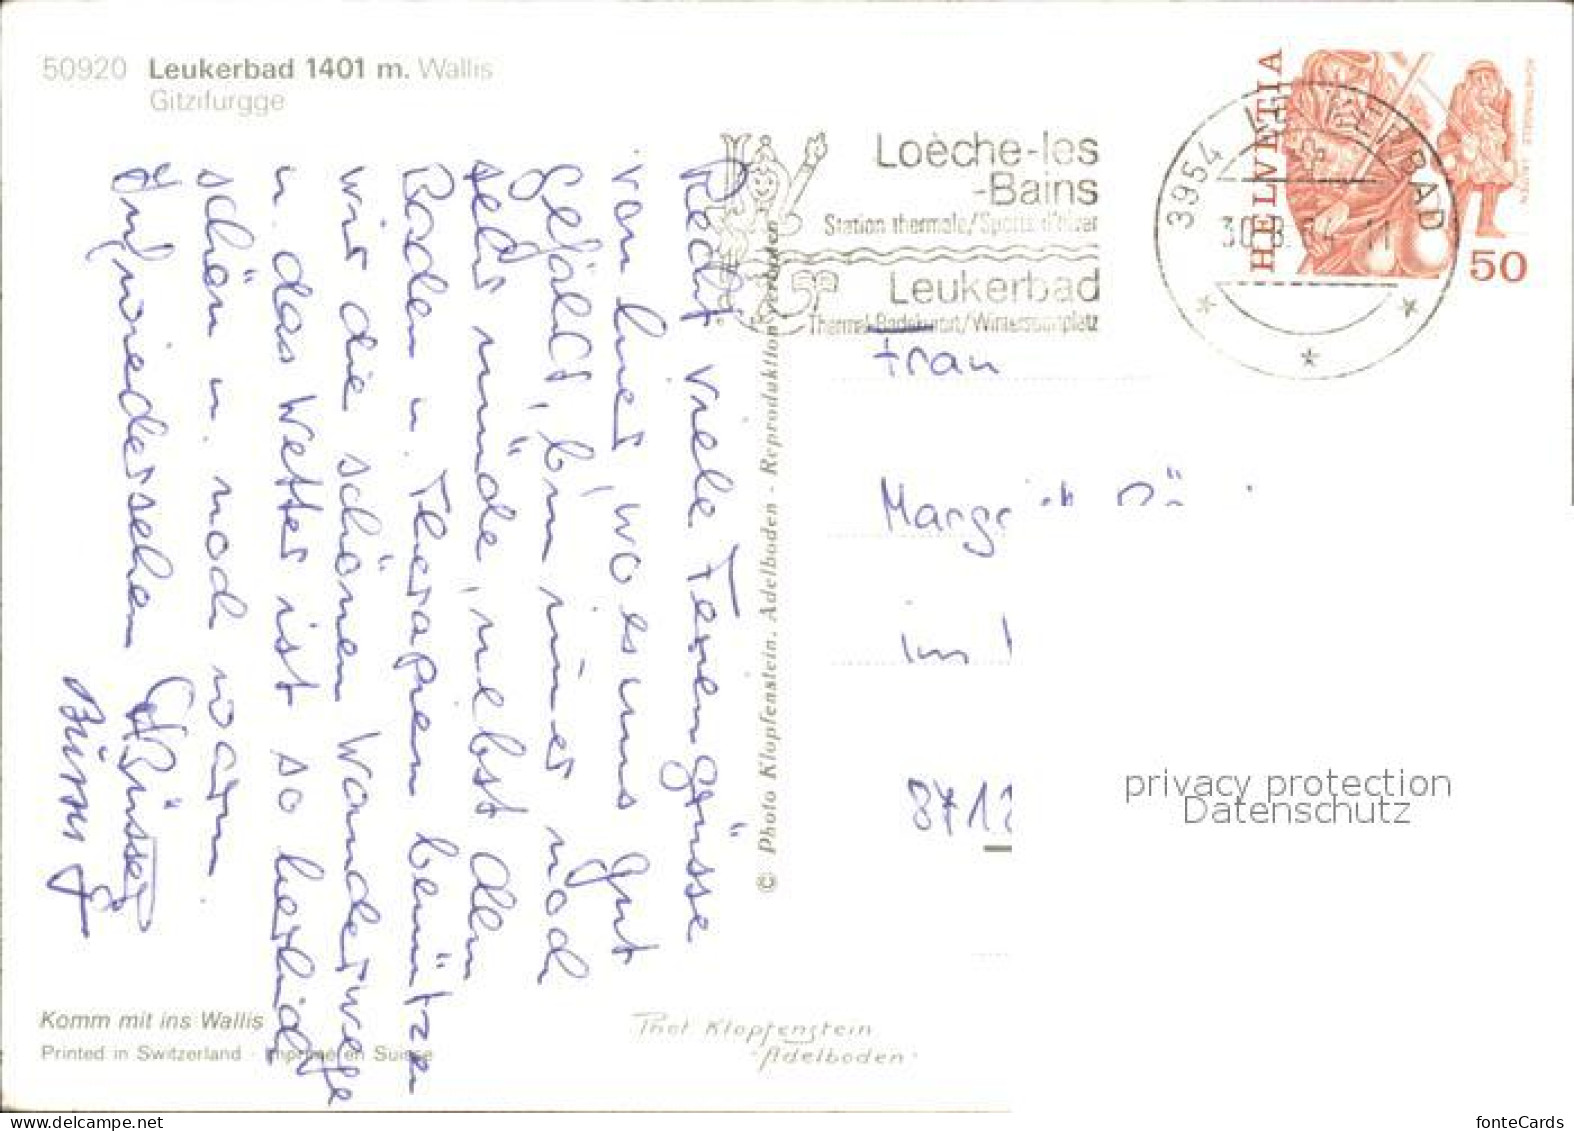 50920 Leukerbad 1401 m. Wallis
Gitzifurgge
Loèche-les
-Bains
Station thermale/Sports d'hiver
Leukerbad
Thermal-Badekurort/Wintersportplatz
3954 LEUKERBAD
HELVETIA
50
Recht viele Feriengrüsse
von hier, wo es uns gut
gefällt, bin imer noch
sehr müde, nebst dem
Baden u. Therapien benützen
wir die schönen Wanderwege
u. das Wetter ist so herlich
schön u. noch warm.
Auf wiedersehen
© Photo Klopfenstein, Adelboden - Reproduktion verboten
Frau
im
8712
privacy protection
Datenschutz
Komm mit ins Wallis
Printed in Switzerland - Imprimé en Suisse
Phot Klopfenstein
Adelboden
fonteCards